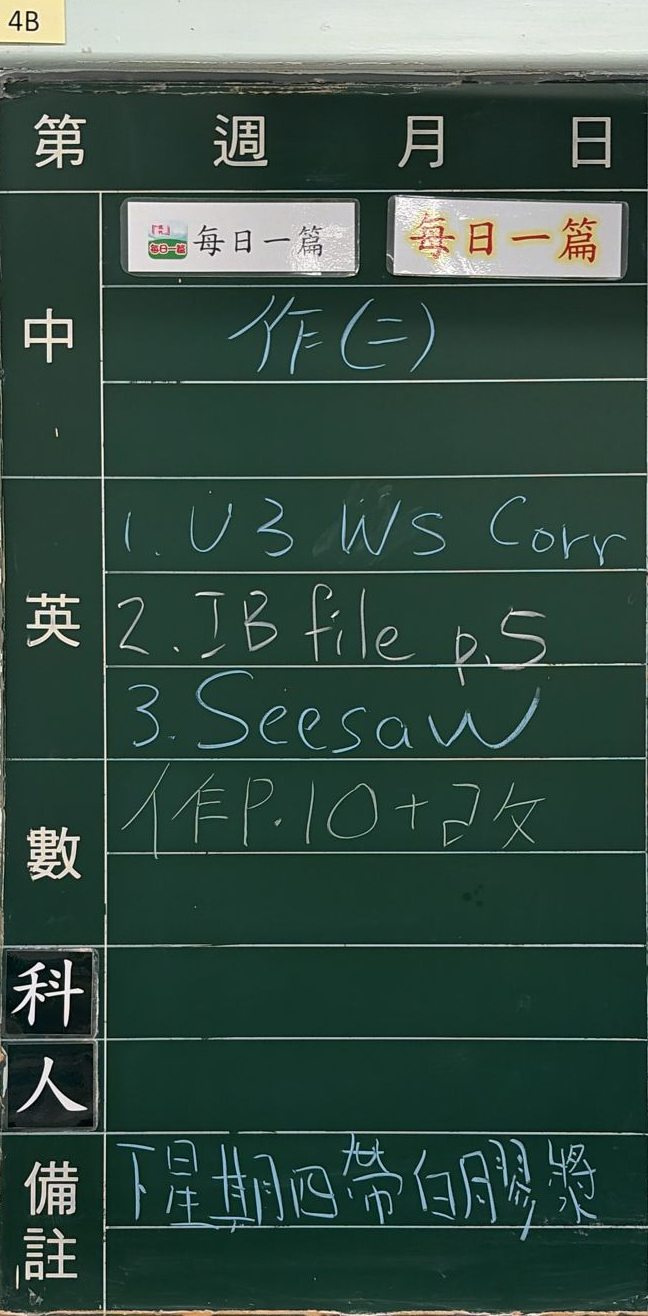 4B
第 週 月 日
每日一篇 每日一篇 每日一篇
中
作(二)
英
1. U3 WS Corr
2. IB file p.5
3. Seesaw
數
作P.10+改
科
人
備註
下星期四帶白膠漿